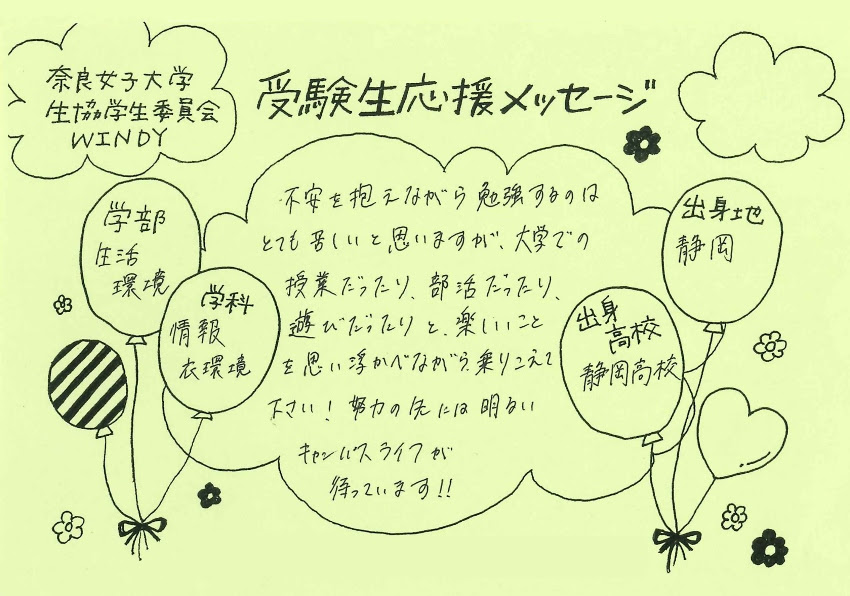 奈良女子大学
生協学生委員会
WINDY
受験生応援メッセージ
学部
生活
環境
学科
情報
衣環境
不安を抱えながら勉強するのは
とても苦しいと思いますが、大学での
授業だったり、部活だったり、
遊びだったりと、楽しいこと
を思い浮かべながら、乗りこえて
下さい！努力の先には明るい
キャンパスライフが
待っています!!
出身地
静岡
出身
高校
静岡高校